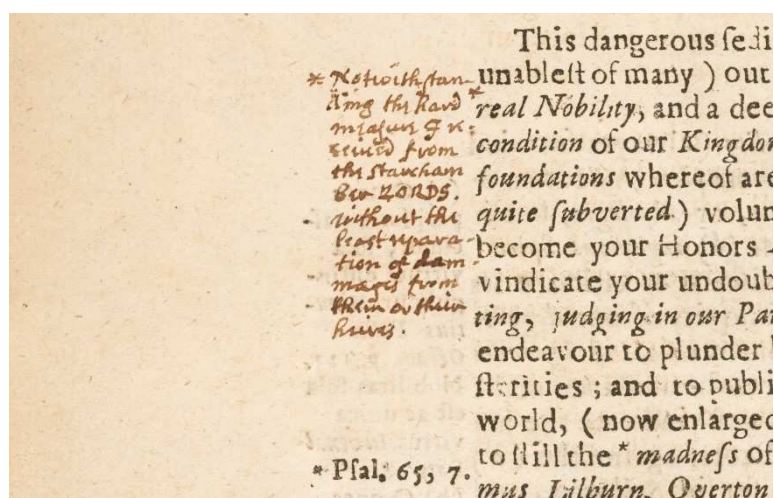 * Notwithstan-
ding the hard
measure I re:
ceived from
the Starcham
ber LORDS.
without the
least repara-
tion of dam-
mages from
them or their
heires.
* Psal. 65, 7.
This dangerous ſedi
unableſt of many ) out
* real Nobility, and a dee
condition of our Kingdom
foundations whereof are
quite ſubverted.) volun
become your Honors
vindicate your undoub
ting, judging in our Par
endeavour to plunder
ſterities ; and to publi
world, ( now enlarged
to ſtill the * madneſs of
mus Lilburn, Overton